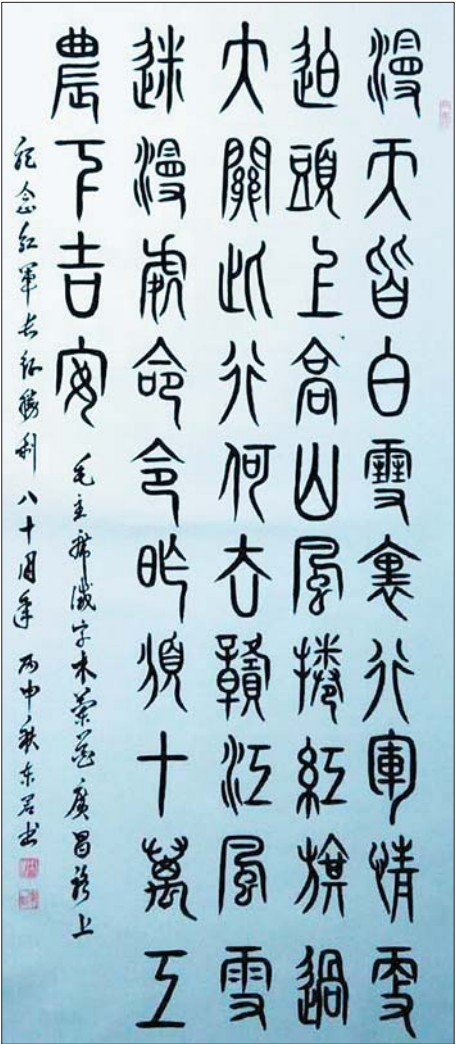 漫天皆白雪裏行軍情更
迫頭上高山風捲紅旗過
大關此行何去贛江風雪
迷漫處命令昨頒十萬工
農下吉安
毛主席減字木蘭花廣昌路上
紀念紅軍长征勝利八十周年 丙申秋东君书